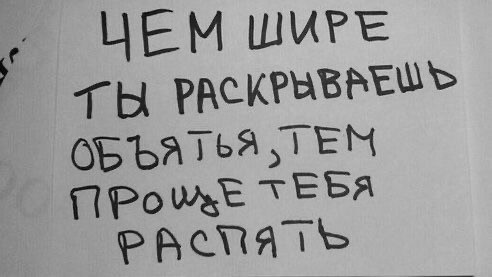 ЧЕМ ШИРЕ
ТЫ РАСКРЫВАЕШЬ
ОБЪЯТЬЯ, ТЕМ
ПРОЩЕ ТЕБЯ
РАСПЯТЬ